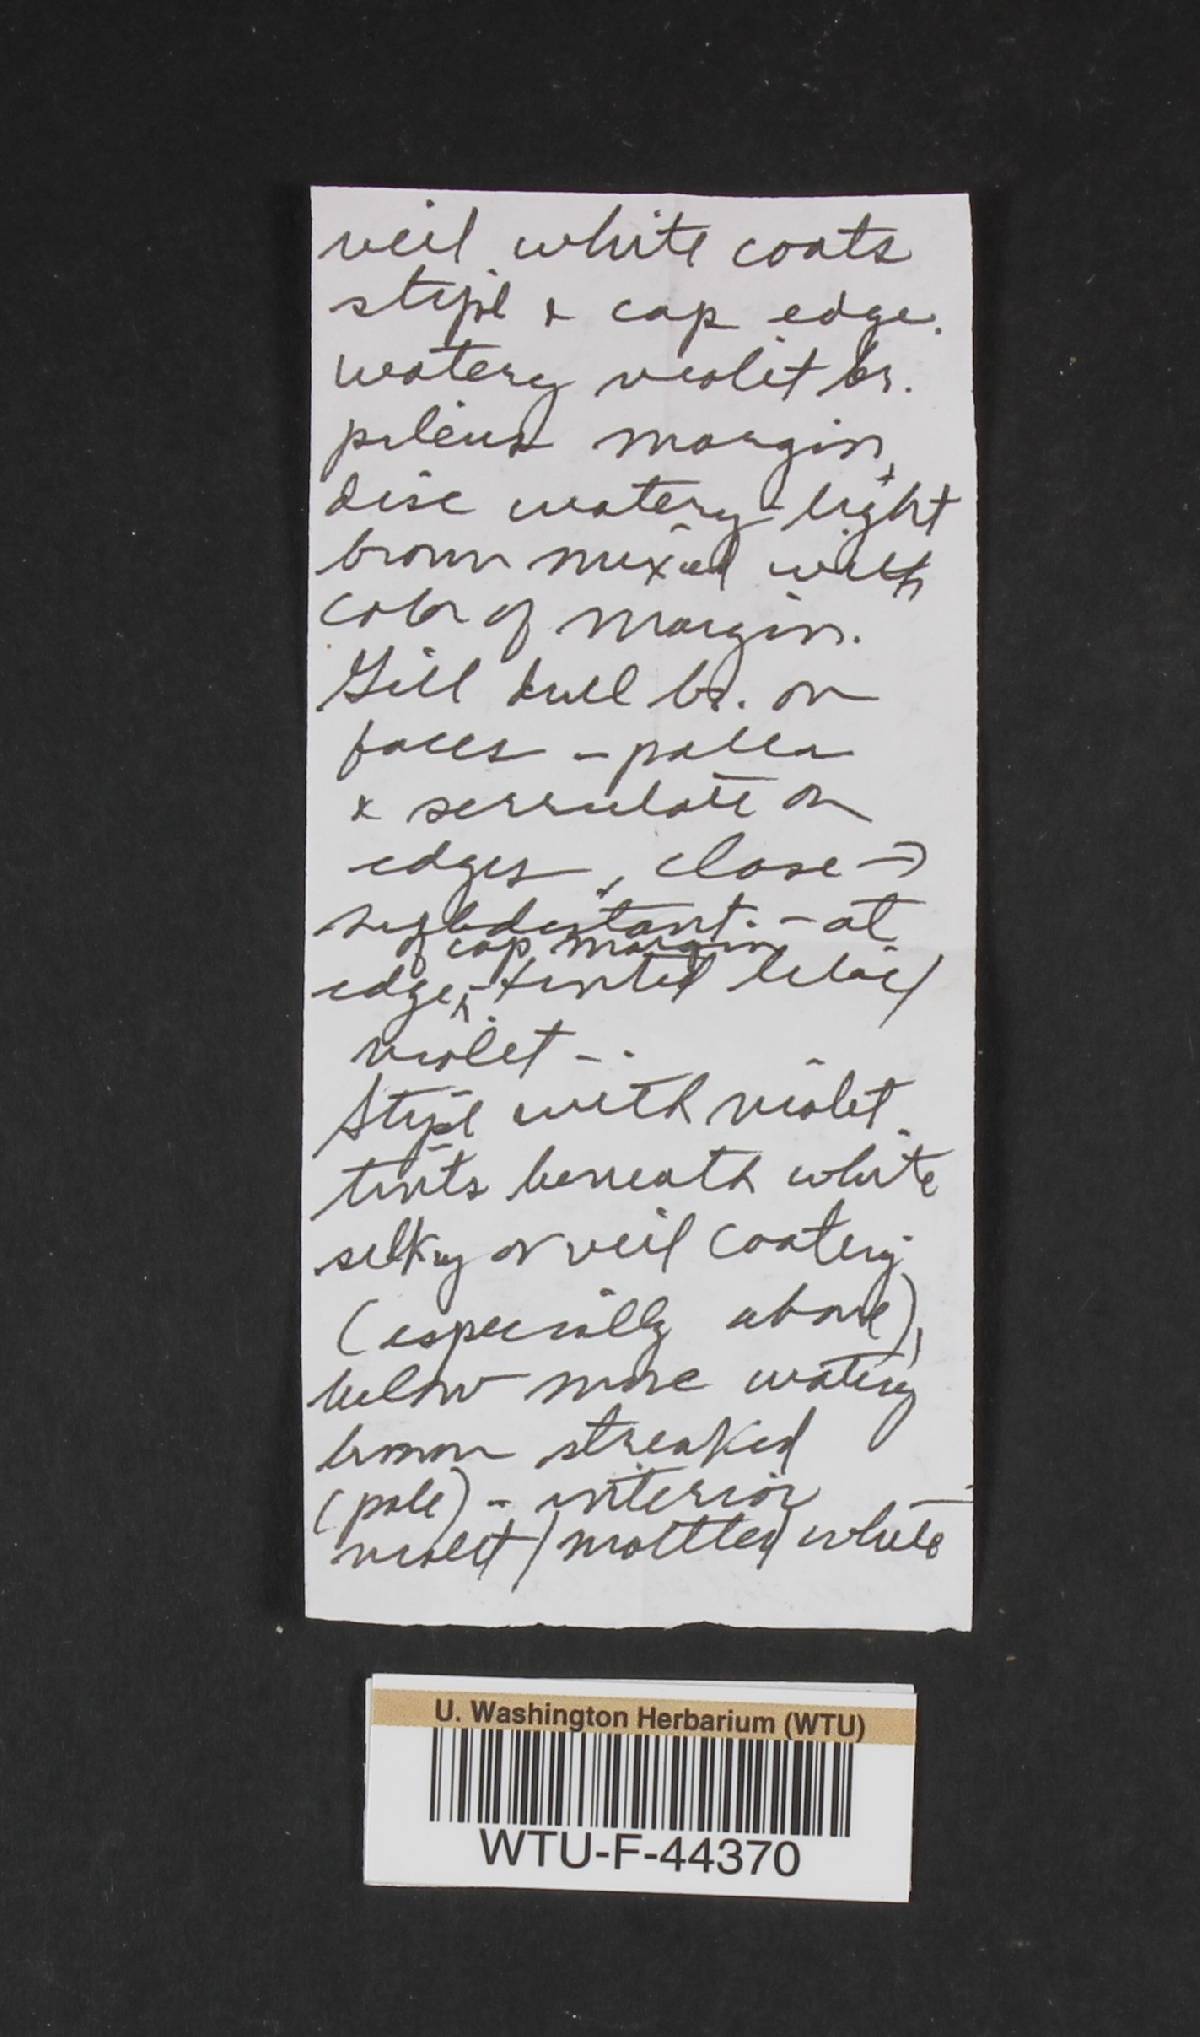 veil white coats
stipe & cap edge.
watery violet br.
pileus margin,
disc watery - light
brown mixed with
color of margin.
Gill dull br. on
faces - paler
& serrulate on
edges, close →
subdistant. - at
of cap margin
edge ^ - tinted lilac/
violet -.
Stipe with violet
tints beneath white
silky or veil coating
(especially above),
below more watery
brown streaked
(pale) - interior
violet/mottled white
U. Washington Herbarium (WTU)
WTU-F-44370